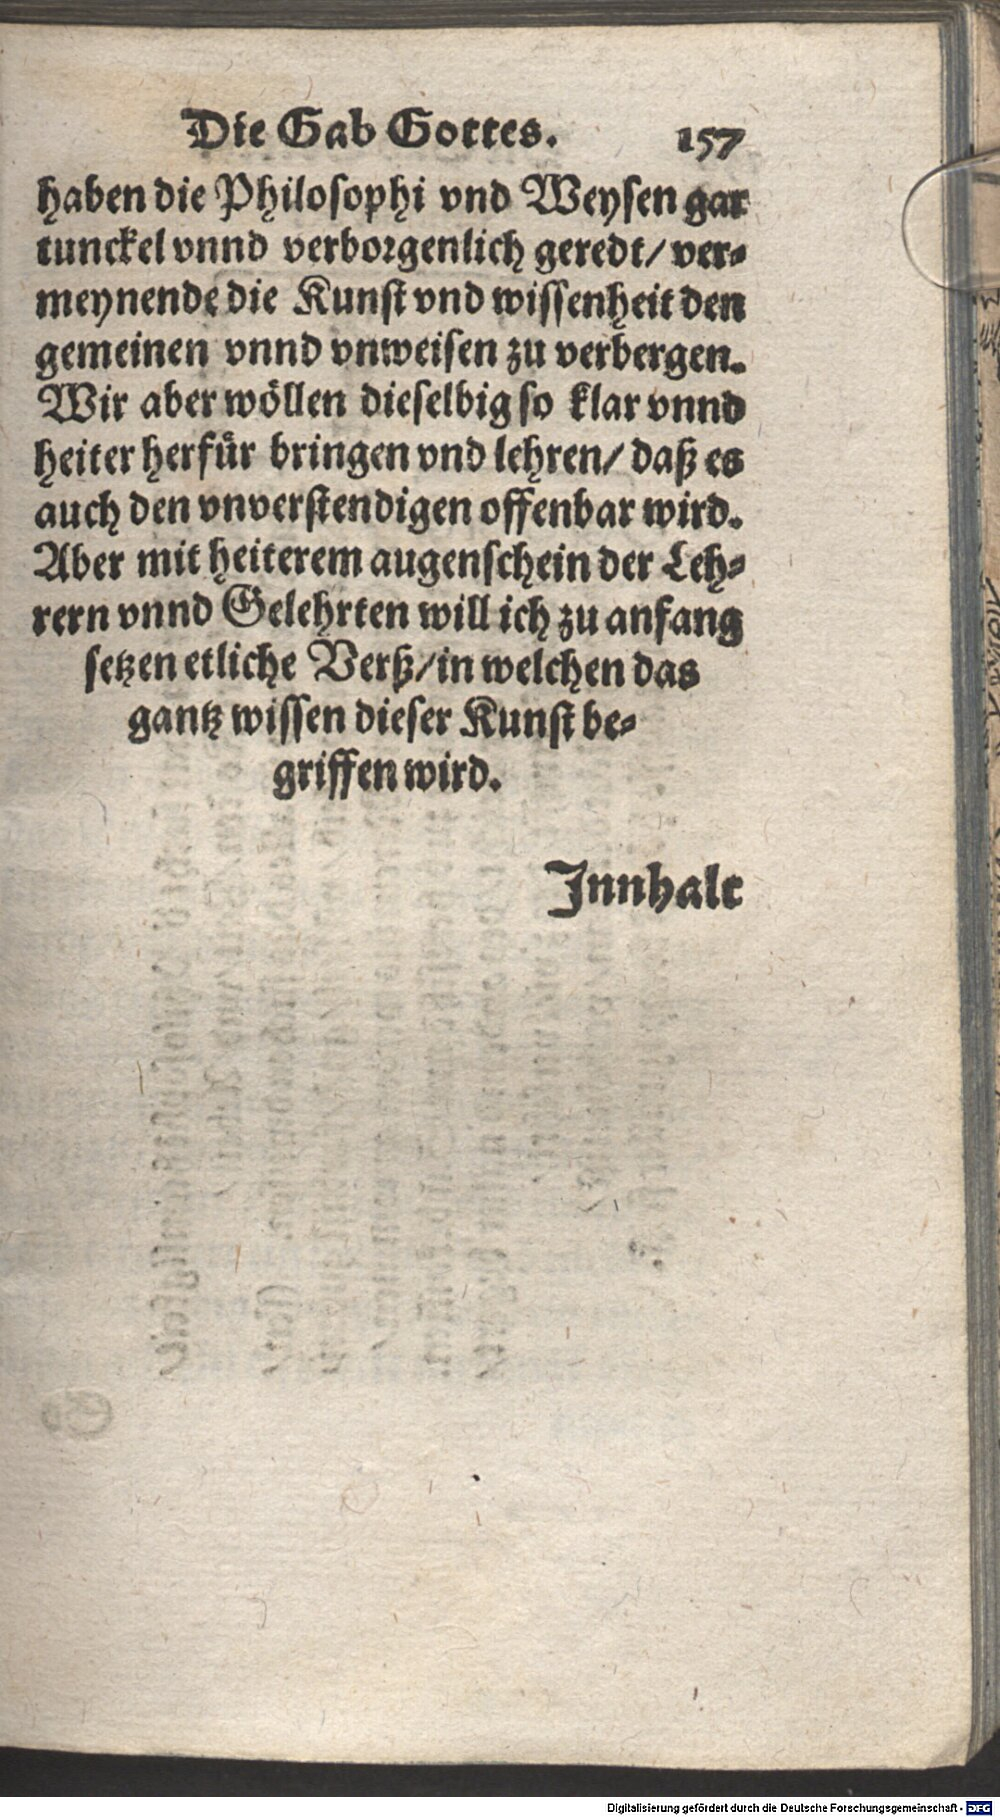 Die Gab Gottes. 157
haben die Philosophi vnd Weysen gar
tunckel vnnd verborgenlich geredt/ ver-
meynende die Kunst vnd wissenheit den
gemeinen vnnd vnweisen zu verbergen.
Wir aber wöllen dieselbig so klar vnnd
heiter herfür bringen vnd lehren/ daß es
auch den vnverstendigen offenbar wird.
Aber mit heiterem augenschein der Leh-
rern vnnd Gelehrten will ich zu anfang
setzen etliche Verß/ in welchen das
gantz wissen dieser Kunst be-
griffen wird.
Innhalt
Digitalisierung gefördert durch die Deutsche Forschungsgemeinschaft - DFG